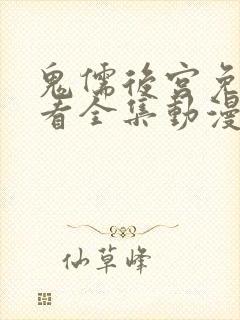 鬼儒後宮免
看全集動漫
仙草峰